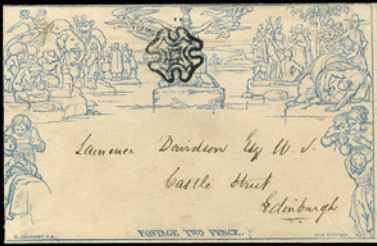 Lawrence Davidson Esq W. S.
Castle Street
Edinburgh
POSTAGE TWO PENCE.